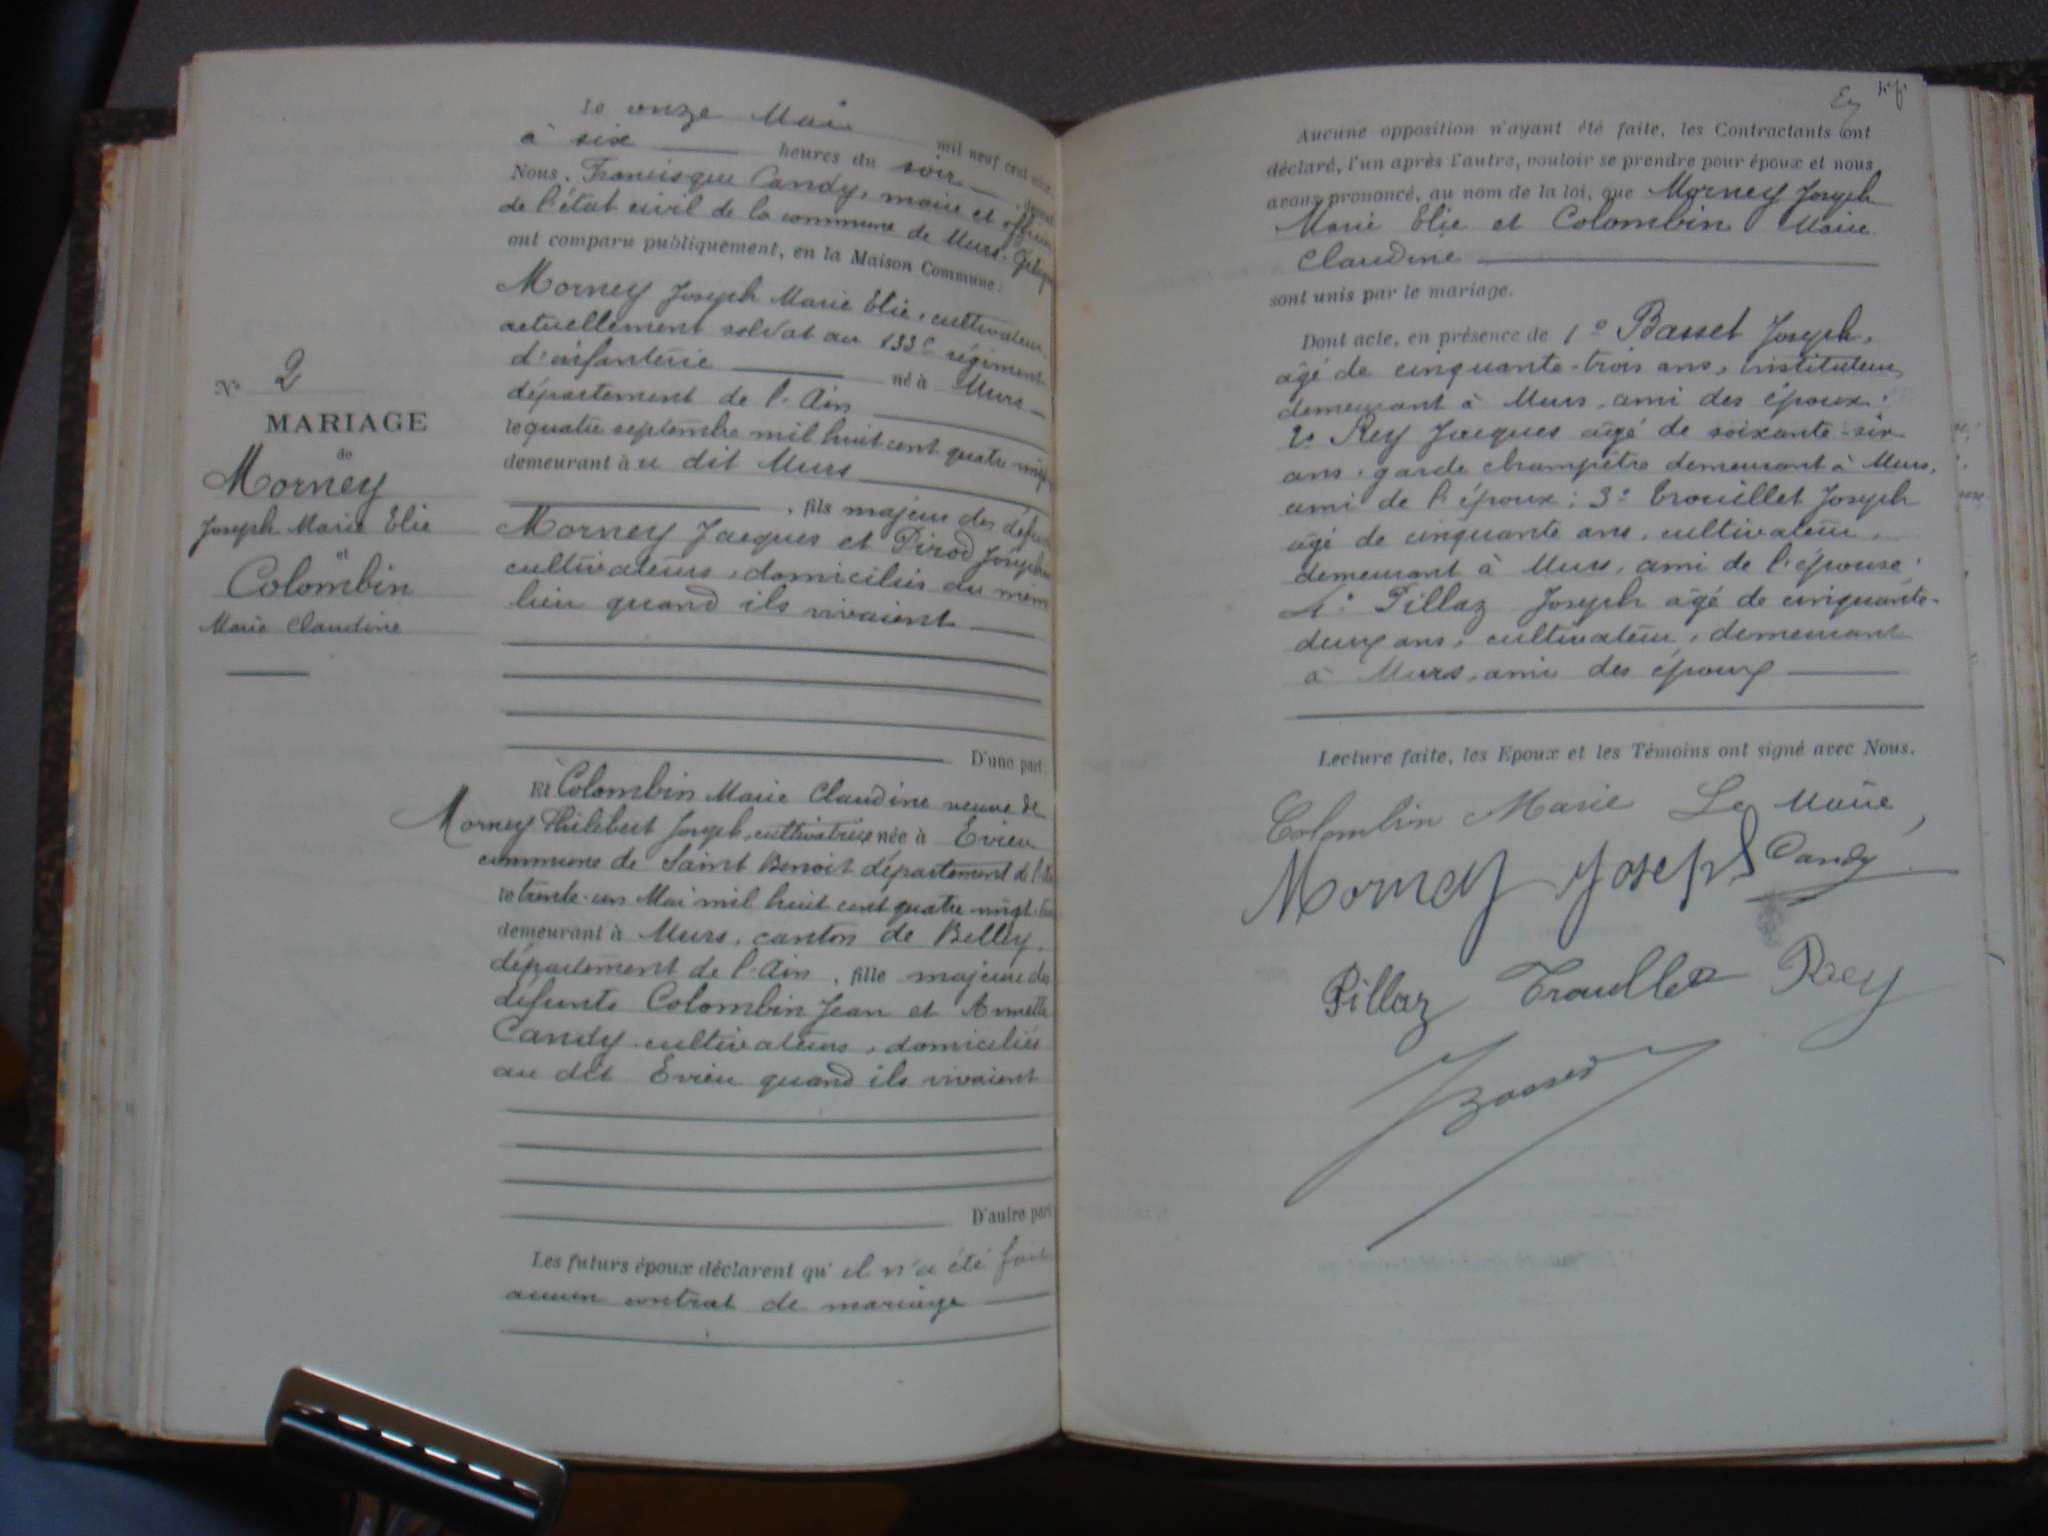 Le onze Mai mil neuf cent
à six heures du soir, devant
Nous, Francisque Candy, maire et officier
de l'état civil de la commune de Murs-
ont comparu publiquement, en la Maison Commune :
Morney Joseph Marie Elie, cultivateur,
actuellement soldat au 133e régiment
d'infanterie né à Murs
département de l'Ain
le quatre septembre mil huit cent quatre
demeurant à u dit Murs
, fils majeur des défunts
Morney Jacques et Pirod
cultivateurs, domiciliés du mem
lieu quand ils vivaient
D'une part
Et Colombin Marie Claudine veuve de
Morney Philibert Joseph, cultivatrice née à Evieu
commune de Saint Benoit département de l'Ain
le trente-un Mai mil huit cent quatre vingt
demeurant à Murs, canton de Belley,
département de l'Ain, fille majeure des
défunts Colombin Jean et Annette
Candy cultivateurs, domiciliés
au dit Evieu quand ils vivaient
D'autre part
Les futurs époux déclarent qu'il n'a été fait
aucun contrat de mariage
N° 2
MARIAGE
de
Morney
Joseph Marie Elie
et
Colombin
Marie Claudine
Aucune opposition n'ayant été faite, les Contractants ont
déclaré, l'un après l'autre, vouloir se prendre pour époux et nous
avons prononcé, au nom de la loi, que Morney Joseph
Marie Elie et Colombin Marie
Claudine
sont unis par le mariage.
Dont acte, en présence de 1° Basset Joseph,
âgé de cinquante-trois ans, instituteur,
demeurant à Murs, ami des époux;
2° Rey Jacques âgé de soixante-six
ans, garde champêtre demeurant à Murs,
ami de l'époux; 3° Trouillet Joseph
âgé de cinquante ans, cultivateur,
demeurant à Murs, ami de l'épouse;
4° Pillaz Joseph âgé de cinquante-
deux ans, cultivateur, demeurant
à Murs, ami des époux
Lecture faite, les Epoux et les Témoins ont signé avec Nous.
Colombin Marie Le Maire,
Morney Joseph Candy
Pillaz Trouillet Rey
Basset